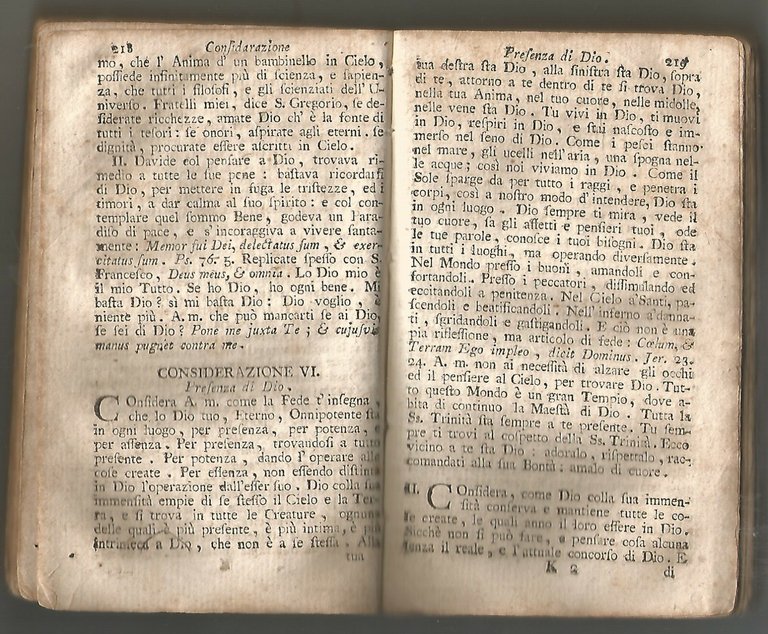 218 Considarazione
mo, che l' Anima d' un bambinello in Cielo,
possiede infinitamente più di scienza, e sapien-
za, che tutti i filosofi, e gli scienziati dell' U-
niverso. Fratelli miei, dice S. Gregorio, se de-
siderate ricchezze, amate Dio ch' è la fonte di
tutti i tesori: se onori, aspirate agli eterni. se
dignità, procurate essere ascritti in Cielo.
II. Davide col pensare a Dio, trovava ri-
medio a tutte le sue pene: bastava ricordarsi
di Dio, per mettere in fuga le tristezze, ed i
timori, a dar calma al suo spirito: e col con-
templare quel sommo Bene, godeva un Para-
diso di pace, e s' incoraggiva a vivere santa-
mente: Memor fui Dei, delectatus sum, & exer-
citatus sum. Ps. 76. 5. Replicate spesso con S.
Francesco, Deus meus, & omnia. Lo Dio mio è
il mio Tutto. Se ho Dio, ho ogni bene. Mi
basta Dio? sì mi basta Dio: Dio voglio, e
niente più. A. m. che può mancarti se ai Dio,
se sei di Dio? Pone me juxta Te; & cujusvis
manus pugnet contra me.
CONSIDERAZIONE VI.
Presenza di Dio.
COnsidera A. m. come la Fede t' insegna,
che lo Dio tuo, Eterno, Onnipotente sta
in ogni luogo, per presenza, per potenza, e
per essenza. Per presenza, trovandosi a tutto
presente. Per potenza, dando l' operare alle
cose create. Per essenza, non essendo distinta
in Dio l'operazione dall'esser suo. Dio colla sua
immensità empie di se stesso il Cielo e la Ter-
ra, e si trova in tutte le Creature, ognuna
delle quali è più presente, è più intima, è più
intrinseca a Dio, che non è a se stessa. Alla
tua
Presenza di Dio. 219
tua destra sta Dio, alla sinistra sta Dio, sopra
di te, attorno a te dentro di te si trova Dio,
nella tua Anima, nel tuo cuore, nelle midolle,
nelle vene sta Dio. Tu vivi in Dio, ti muovi
in Dio, respiri in Dio, e stai nascosto e im-
merso nel seno di Dio. Come i pesci stanno
nel mare, gli ucelli nell'aria, una spogna nel-
le acque; così noi viviamo in Dio. Come il
Sole sparge da per tutto i raggi, e penetra i
corpi, così a nostro modo d'intendere, Dio sta
in ogni luogo. Dio sempre ti mira, vede il
tuo cuore, sa gli affetti e pensieri tuoi, ode
le tue parole, conosce i tuoi bisogni. Dio sta
in tutti i luoghi, ma operando diversamente.
Nel Mondo presso i buoni, amandoli e con-
fortandoli. Presso i peccatori, dissimulando ed
eccitandoli a penitenza. Nel Cielo a'Santi, pa-
scendoli e beatificandoli. Nell' inferno a'danna-
ti, sgridandoli e gastigandoli. E ciò non è una
pia riflessione, ma articolo di fede: Cœlum, &
Terram Ego impleo, dicit Dominus. Jer. 23.
24. A. m. non ai necessità di alzare gli occhi
ed il pensiere al Cielo, per trovare Dio. Tut-
to questo Mondo è un gran Tempio, dove a-
bita di continuo la Maestà di Dio. Tutta la
Ss. Trinità sta sempre a te presente. Tu sem-
pre ti trovi al cospetto della Ss. Trinità. Ecco
vicino a te sta Dio: adoralo, rispettalo, rac-
comandati alla sua Bontà: amalo di cuore.
II. COnsidera, come Dio colla sua immen-
sità conserva e mantiene tutte le co-
se create, le quali anno il loro essere in Dio.
Sicchè non si può fare, o pensare cosa alcuna
senza il reale, e l'attuale concorso di Dio. E
K 2 di